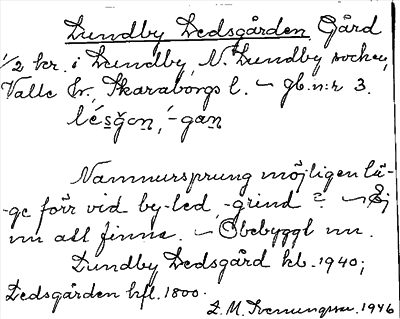 Lundby Ledsgården Gård
1/2 kr. i Lundby, N. Lundby socken,
Valle hr., Skaraborgs l. – gb.n:r 3.
lésgon, -gan
Namnursprung möjligen lä-
ge förr vid by-led, -grind? – Ej
nu att finna. – Obebyggt nu.
Lundby Ledsgård kb. 1940;
Ledsgården hfl. 1800.
1946